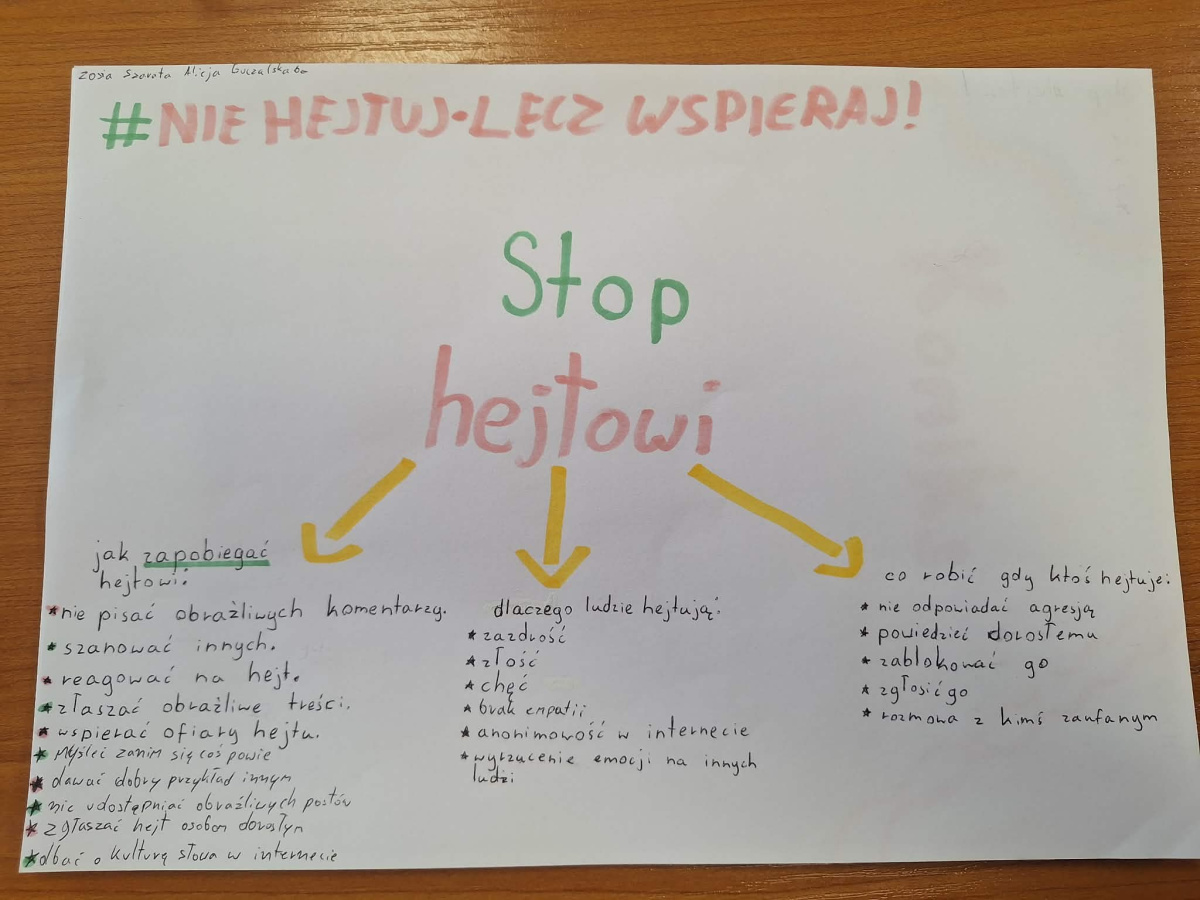 Zosa Szorota Alicja
#NIE HEJTUJ-LECZ WSPIERAJ!
Stop
hejtowi
jak zapobiegać
hejtowi:
*nie pisać obraźliwych komentarzy.
*szanować innych.
*reagować na hejt.
*złaszać obraźliwe treści.
*wspierać ofiary hejtu.
*Myśleć zanim się coś powie
*dawać dobry przykład innym
*nie udostępniać obraźliwych postów
*zgłaszać hejt osobom dorosłym
*dbać o kulturę słowa w internecie
dlaczego ludzie hejtują:
*zazdrość
*złość
*chęć
*brak empatii
*anonimowość w internecie
*wyrzucenie emocji na innych
ludzi
co robić gdy ktoś hejtuje:
*nie odpowiadać agresją
*powiedzieć dorosłemu
*zablokować go
*zgłosić go
*rozmowa z kimś zaufanym